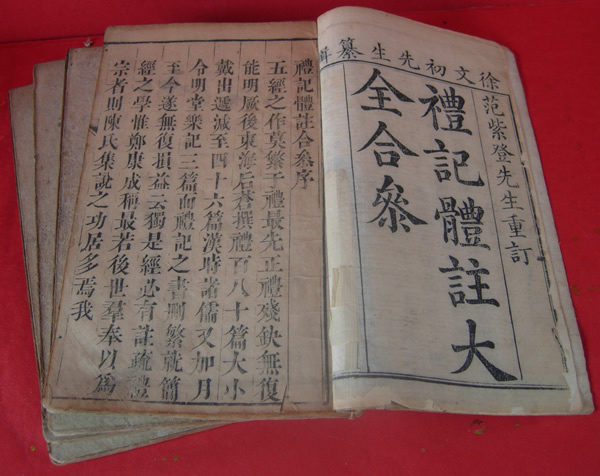 徐文初先生纂
范紫登先生重訂
禮記體註大
全合叅
禮記體註合叅序
五經之作莫繁于禮最先正禮殘缺無復
能明厥後東海后蒼撰禮百八十篇大小
戴出遞減至四十六篇漢時諸儒又加月
令明堂樂記三篇而禮記之書刪繁就簡
至今遂無復損益云獨是經必有註疏禮
經之學惟鄭康成稱最若後世羣奉以為
宗者則陳氏集說之功居多焉我